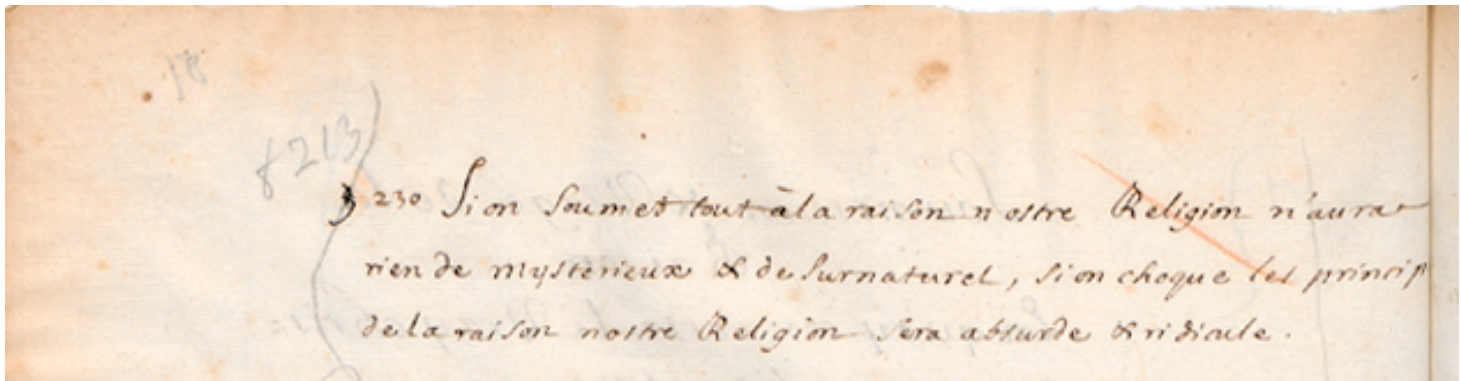 18
8213
230 Si on soumet tout à la raison nostre Religion n'aura
rien de mysterieux & de surnaturel, si on choque les princip
de la raison nostre Religion sera absurde & ridicule.